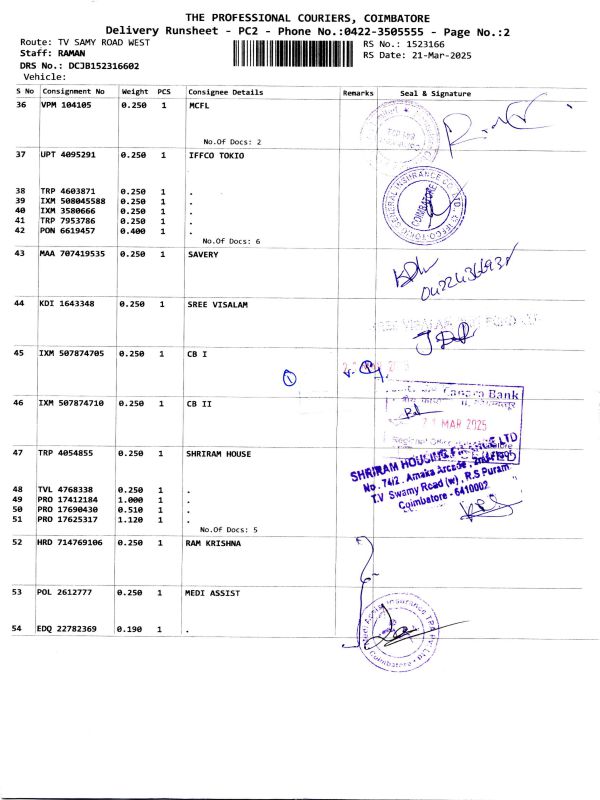 THE PROFESSIONAL COURIERS, COIMBATORE
Delivery Runsheet - PC2 - Phone No.:0422-3505555 - Page No.:2
Route: TV SAMY ROAD WEST
RS No.: 1523166
Staff: RAMAN
RS Date: 21-Mar-2025
DRS No.: DCJB152316602
Vehicle:
S No Consignment No Weight PCS Consignee Details Remarks Seal & Signature
36 VPM 104105 0.250 1 MCFL
No.Of Docs: 2
37 UPT 4095291 0.250 1 IFFCO TOKIO
38 TRP 4603871 0.250 1 .
39 IXM 508045588 0.250 1 .
40 IXM 3580666 0.250 1 .
41 TRP 7953786 0.250 1 .
42 PON 6619457 0.400 1 .
No.Of Docs: 6
IFFCO-TOKIO GENERAL INSURANCE CO. LTD.
COIMBATORE
43 MAA 707419535 0.250 1 SAVERY
44 KDI 1643348 0.250 1 SREE VISALAM
45 IXM 507874705 0.250 1 CB I
1
46 IXM 507874710 0.250 1 CB II
Canara Bank
MAR 2025
Regional Office
47 TRP 4054855 0.250 1 SHRIRAM HOUSE
SHRIRAM HOUSING FINANCE LTD
No. 74/2, Amaka Arcade, 2nd Floor
T.V Swamy Road (w), R.S Puram
Coimbatore - 6410002
48 TVL 4768338 0.250 1 .
49 PRO 17412184 1.000 1 .
50 PRO 17690430 0.510 1 .
51 PRO 17625317 1.120 1 .
No.Of Docs: 5
52 HRD 714769106 0.250 1 RAM KRISHNA
53 POL 2612777 0.250 1 MEDI ASSIST
54 EDQ 22782369 0.190 1 .
Medi Assist Insurance TPA Pvt Ltd
Coimbatore